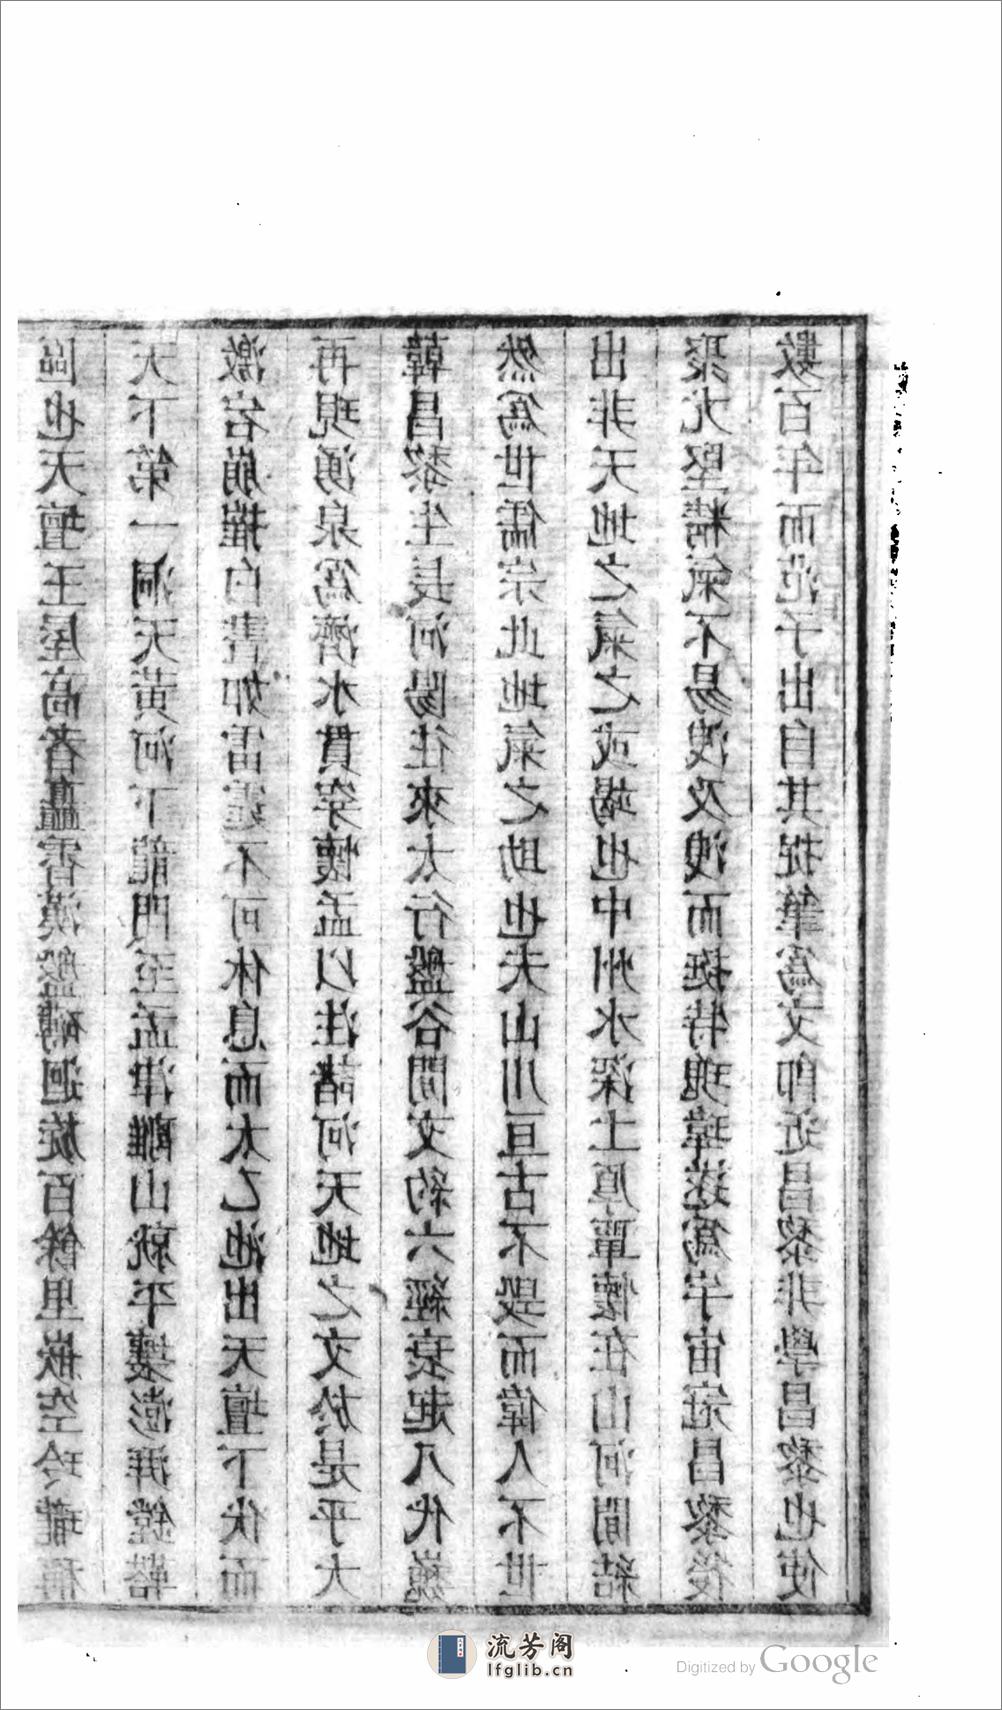 區也天壇王屋高者矗霄漢盤礡迴旋百餘里嵌空玲瓏稱
天下第一洞天黃河下龍門至孟津離山就平壤澎湃鏜鞳
激岩崩摧白晝如雷霆不可休息而太乙池出天壇下伏而
再現湧泉爲濟水貫穿懷孟以注諸河天地之文於是乎大
韓昌黎生長河陽往來太行盤谷間文約六經衰起八代巍
然爲世儒宗此地氣之助也夫山川亘古不毀而偉人不世
出非天地之氣之或竭也中州水深土厚覃懷在山河間結
聚尤堅精氣不易洩及洩而挺特瑰瑋遂爲宇宙冠昌黎後
數百年而范子出自其捉筆爲文卽近昌黎非學昌黎也使
流芳阁
lfglib.cn
Digitized by Google